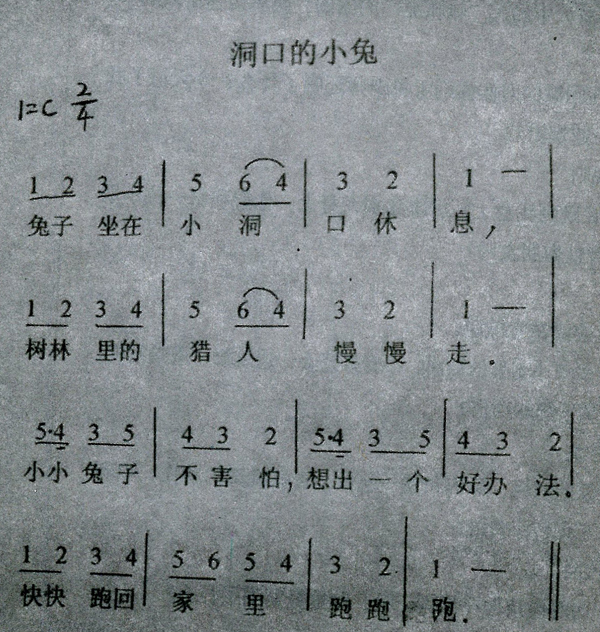 洞口的小兔
1=C 2/4
1 2 3 4 | 5 6 4 | 3 2 | 1 — |
兔子 坐在 小 洞 口 休 息，
1 2 3 4 | 5 6 4 | 3 2 | 1 — |
树林 里的 猎 人 慢 慢 走。
5·4 3 5 | 4 3 2 | 5·4 3 5 | 4 3 2 |
小小 兔子 不害 怕，想出 一个 好办 法。
1 2 3 4 | 5 6 5 4 | 3 2 | 1 — ‖
快快 跑回 家 里 跑 跑 跑.